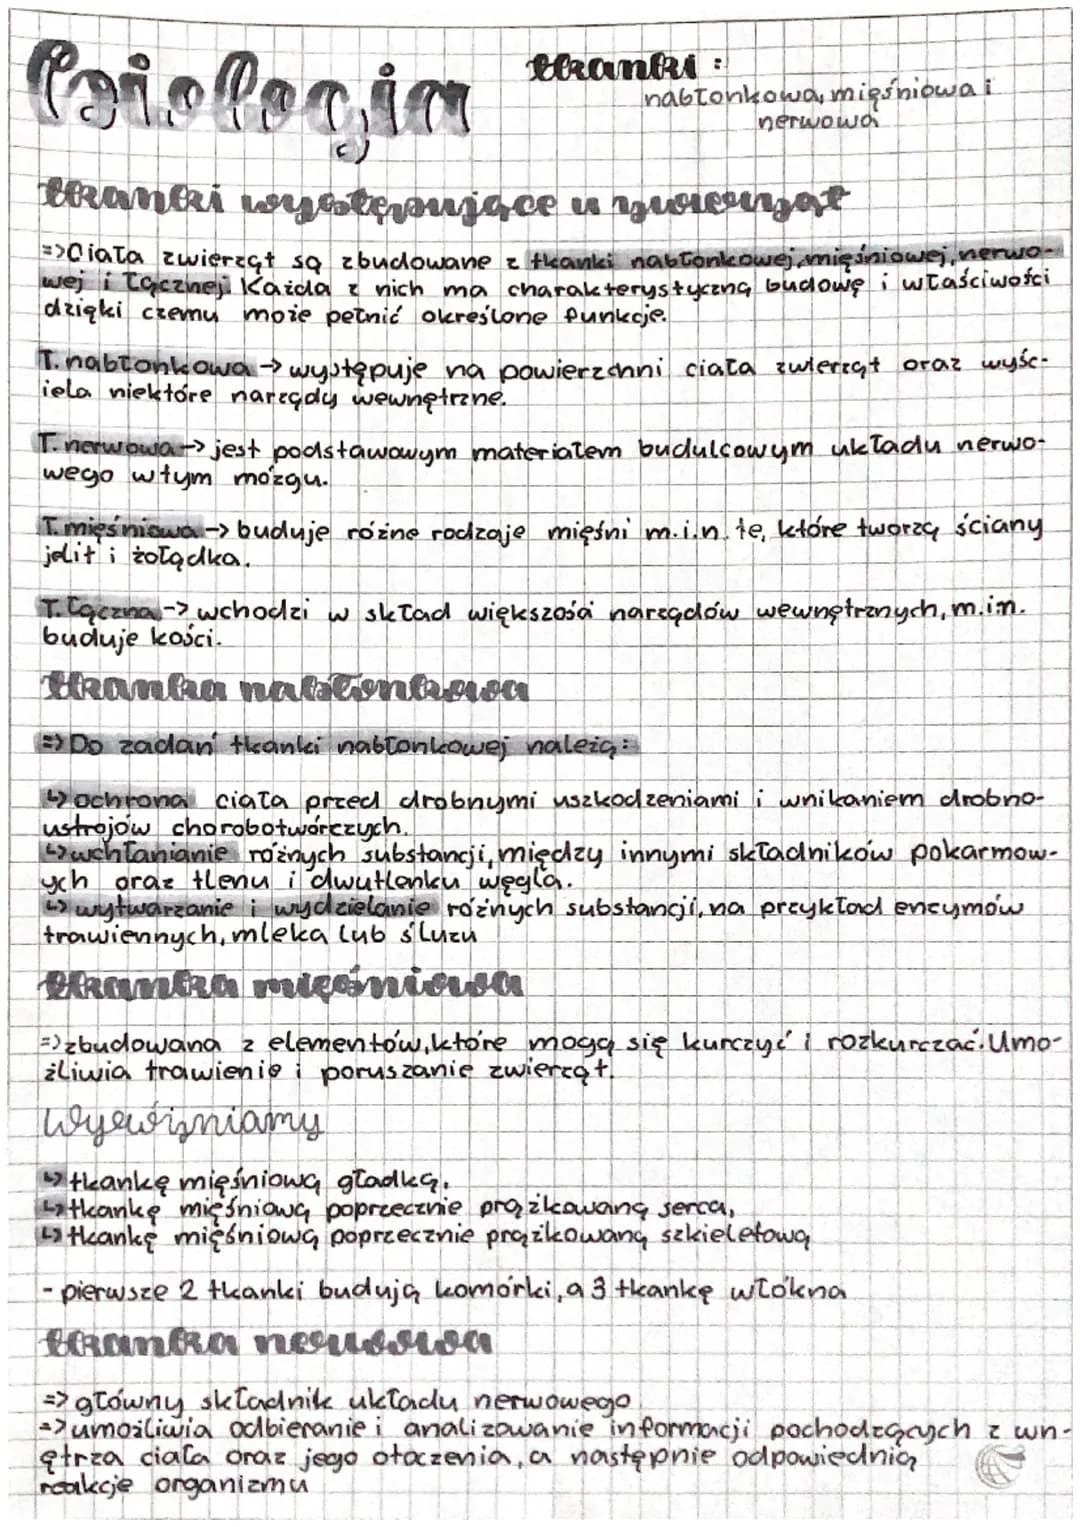 Biologia
tkanki:
nabłonkowa, mięśniowa i
nerwowa
tkanki występujące u zwierząt
=> Ciała zwierząt są zbudowane z tkanki nabłonkowej, mięśniowej, nerwo-
wej i łącznej. Każda z nich ma charakterystyczną budowę i właściwości
dzięki czemu może pełnić określone funkcje.
T. nabłonkowa -> występuje na powierzchni ciała zwierząt oraz wyśc-
iela niektóre narządy wewnętrzne.
T. nerwowa -> jest podstawowym materiałem budulcowym układu nerwo-
wego w tym mózgu.
T. mięśniowa -> buduje różne rodzaje mięśni m.i.n. te, które tworzą ściany
jelit i żołądka.
T. łączna -> wchodzi w skład większości narządów wewnętrznych, m.in.
buduje kości.
tkanka nabłonkowa
=> Do zadań tkanki nabłonkowej należą:
↳ ochrona ciała przed drobnymi uszkodzeniami i wnikaniem drobno-
ustrojów chorobotwórczych.
↳ wchłanianie różnych substancji, między innymi składników pokarmow-
ych oraz tlenu i dwutlenku węgla.
↳ wytwarzanie i wydzielanie różnych substancji, na przykład enzymów
trawiennych, mleka lub śluzu
tkanka mięśniowa
=> zbudowana z elementów, które mogą się kurczyć i rozkurczać. Umo-
żliwia trawienie i poruszanie zwierząt.
Wyewiżniamy
↳ tkankę mięśniową gładką,
↳ tkankę mięśniową poprzecznie prążkowaną serca,
↳ tkankę mięśniową poprzecznie prążkowaną szkieletową
- pierwsze 2 tkanki budują komórki, a 3 tkankę włókna
tkanka nerwowa
=> główny składnik układu nerwowego
=> umożliwia odbieranie i analizowanie informacji pochodzących z wn-
ętrza ciała oraz jego otoczenia, a następnie odpowiednią
reakcje organizmu